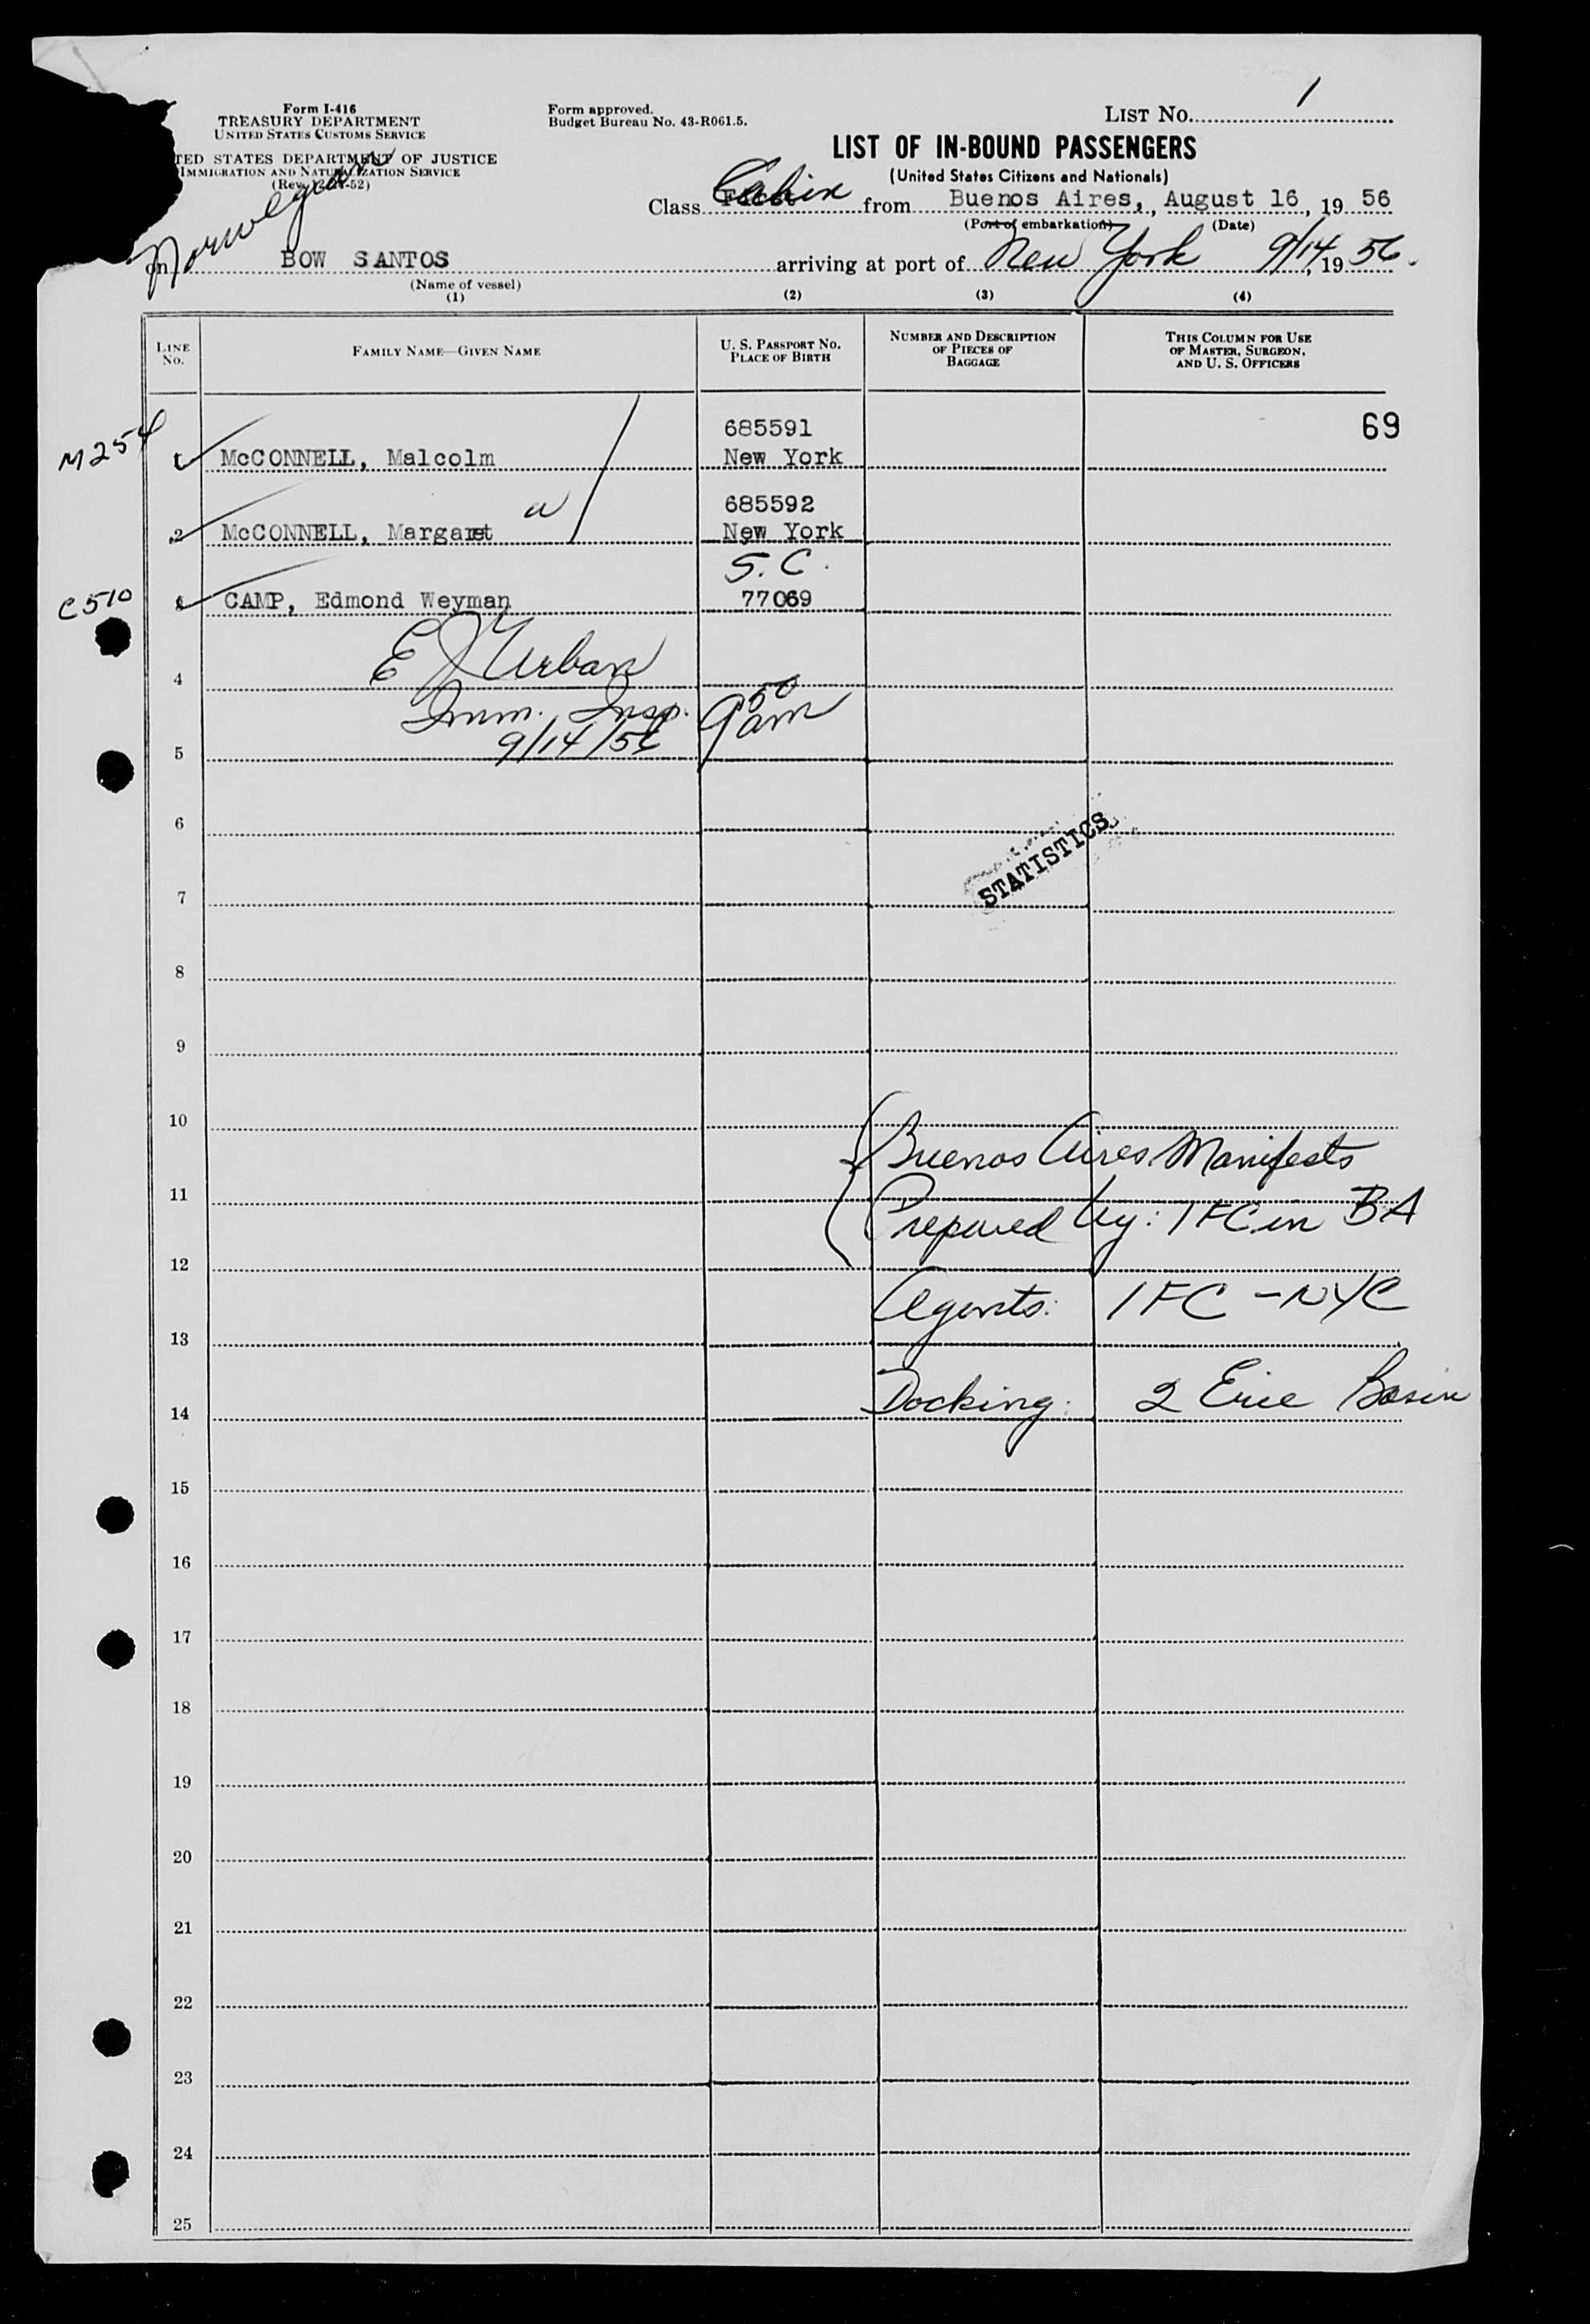 Form I-416
TREASURY DEPARTMENT
UNITED STATES CUSTOMS SERVICE
TED STATES DEPARTMENT OF JUSTICE
IMMIGRATION AND NATURALIZATION SERVICE
Form approved.
Budget Bureau No. 43-R061.5.
LIST No. 1
LIST OF IN-BOUND PASSENGERS
(United States Citizens and Nationals)
Class Cabin from Buenos Aires, , August 16 , 19 56
(Port of embarkation) (Date)
Norwegian
on BOW SANTOS arriving at port of New York 9/14 , 19 56.
(Name of vessel)
(1) (2) (3) (4)
LINE No. FAMILY NAME—GIVEN NAME U. S. PASSPORT No. PLACE OF BIRTH NUMBER AND DESCRIPTION OF PIECES OF BAGGAGE THIS COLUMN FOR USE OF MASTER, SURGEON, AND U. S. OFFICERS
69
M254
685591
1 McCONNELL, Malcolm New York
685592
2 McCONNELL, Margaret New York
S.C.
C510 CAMP, Edmond Weyman 77069
E J Urban
4
Imm. Insp. 9 50 am
9/14/56
5
6
STATISTICS
7
8
9
10
Buenos Aires Manifests
11
Prepared by: IFC in BA
12
Agents: IFC - NYC
13
Docking: 2 Erie Basin
14
15
16
17
18
19
20
21
22
23
24
25